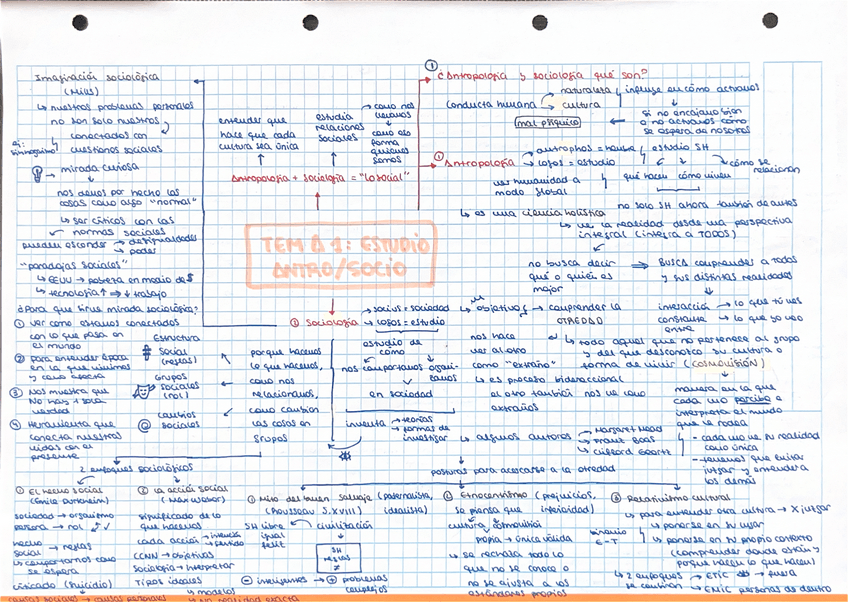 TEMA 1: ESTUDIO
ANTRO/SOCIO
Antropología + sociología = "lo social"
entender que
hace que cada
cultura sea única
estudia
relaciones
sociales
→ como nos
llevamos
como eso
forma
quienes
somos
① ¿Antropología y sociología qué son?
conducta humana
naturaleza
cultura
influye en cómo actuamos
si no encajamos bien
o no actuamos como
se espera de nosotros
mal psíquico
① Antropología
antrophos = hombre
logos = estudio
estudia SH
qué hacen cómo viven
cómo se
relacionan
ver humanidad a
modo global
no solo SH ahora también de antes
↳ es una ciencia holística
↳ ver la realidad desde una perspectiva
integral (integra a TODOS)
no busca decir
qué o quién es
mejor
⇒ BUSCA comprender a todos
y sus distintas realidades
↳ objetivos → comprender la
OTREDAD
interacción → lo que tú ves
constante → lo que yo veo
entre
↳ todo aquel que no pertenece al grupo
y del que desconozco su cultura o
forma de vivir (COSMOVISIÓN)
nos hace
ver al otro
como "extraño"
↳ es proceso bidireccional
el otro también nos ve como
extraños
manera en la que
cada uno percibe e
interpreta el mundo
que le rodea
- cada uno ve tu realidad
como única
- tenemos que evitar
juzgar y entender a
los demás
↳ algunos autores
→ Margaret Mead
→ Franz Boas
→ Clifford Geertz
posturas para acercarse a la otredad
① Mito del buen salvaje (paternalista,
(Rousseau S.XVIII) idealista)
SH libre
igual
feliz
civilización
SH
reglas
≠
⊖ inteligentes → ⊕ problemas
complejos
② Etnocentrismo (prejuicios,
se piensa que inferioridad)
cultura cosmovisión
propia → única válida
↳ se rechaza todo lo
que no se conoce o
no se ajusta a los
estándares propios
③ Relativismo cultural
↳ para entender otra cultura → X juzgar
↳ ponerse en tu lugar
↳ ponerse en tu propio contexto
(comprender donde están y
porque hacen lo que hacen)
binario
E-T
↳ 2 enfoques → ETIC → fuera
se centran → EMIC personas de dentro
② Sociología
→ socius = sociedad
→ logos = estudio
estudio de
cómo
nos comportamos organi-
zamos
en sociedad
inventa → teorías
→ formas de
investigar
porque hacemos
lo que hacemos,
como nos
relacionamos,
como cambian
las cosas en
grupos
Estructura
# social
(reglas)
Grupos
sociales
(rol)
cambios
@ sociales
Imaginación sociológica
(Mills)
↳ nuestros problemas personales
no son solo nuestros
conectados con
cuestiones sociales
ej:
sinhogarismo
→ mirada curiosa
nos damos por hecho las
cosas como algo "normal"
↳ ser críticos con las
normas sociales
pueden esconder → desigualdades
→ poder
"paradojas sociales"
↳ EEUU → pobreza en medio de $
↳ tecnología ↑ ⇒ ↓ trabajo
¿Para que sirve mirada sociológica?
① ver como estamos conectados
con lo que pasa en
el mundo
② para entender época
en la que vivimos
y como afecta
③ Nos muestra que
No hay 1 sola
verdad
④ Herramienta que
conecta nuestras
vidas con el
presente
2 enfoques sociológicos
① El hecho social
(Émile Durkheim)
sociedad → organismo
persona → rol
hecho → reglas
social
↳ comportarnos como
se espera
criticado (suicidio)
causas sociales → causas personales
② La acción social
(Max Weber)
significado de lo
que hacemos
cada acción → intención
→ sentido
CCNN → objetivas
Sociología → interpretar
Tipos ideales
↳ modelos
↳ NO realidad exacta